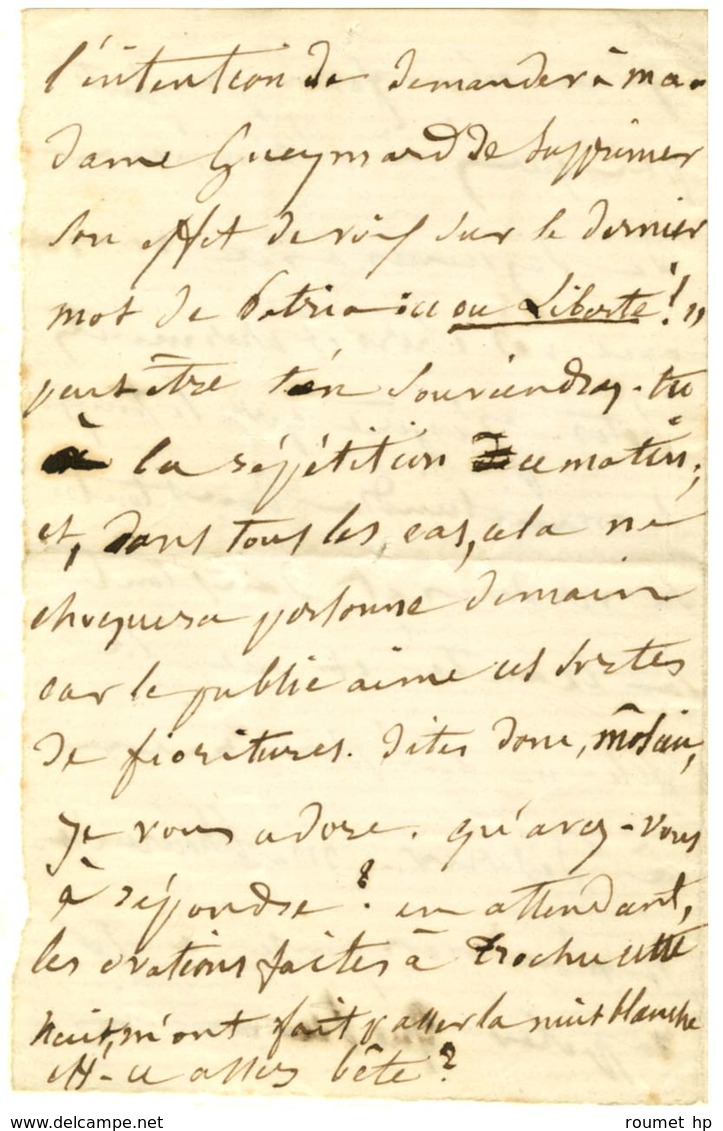 l'intention de demander à ma-
dame Gueymard de supprimer
son effet de voix sur le dernier
mot de Patria : « ou Liberté ! »
peut-être t'en souviendras-tu
à la répétition de ce matin ;
et, dans tous les cas, cela ne
choquera personne demain
car le public aime ces sortes
de fioritures. dites donc, môsieu,
je vous adore. qu'avez-vous
à répondre ? en attendant,
les ovations faites à Trochu cette
nuit, m'ont fait passer la nuit blanche
est-ce assez bête ?
roumet hp